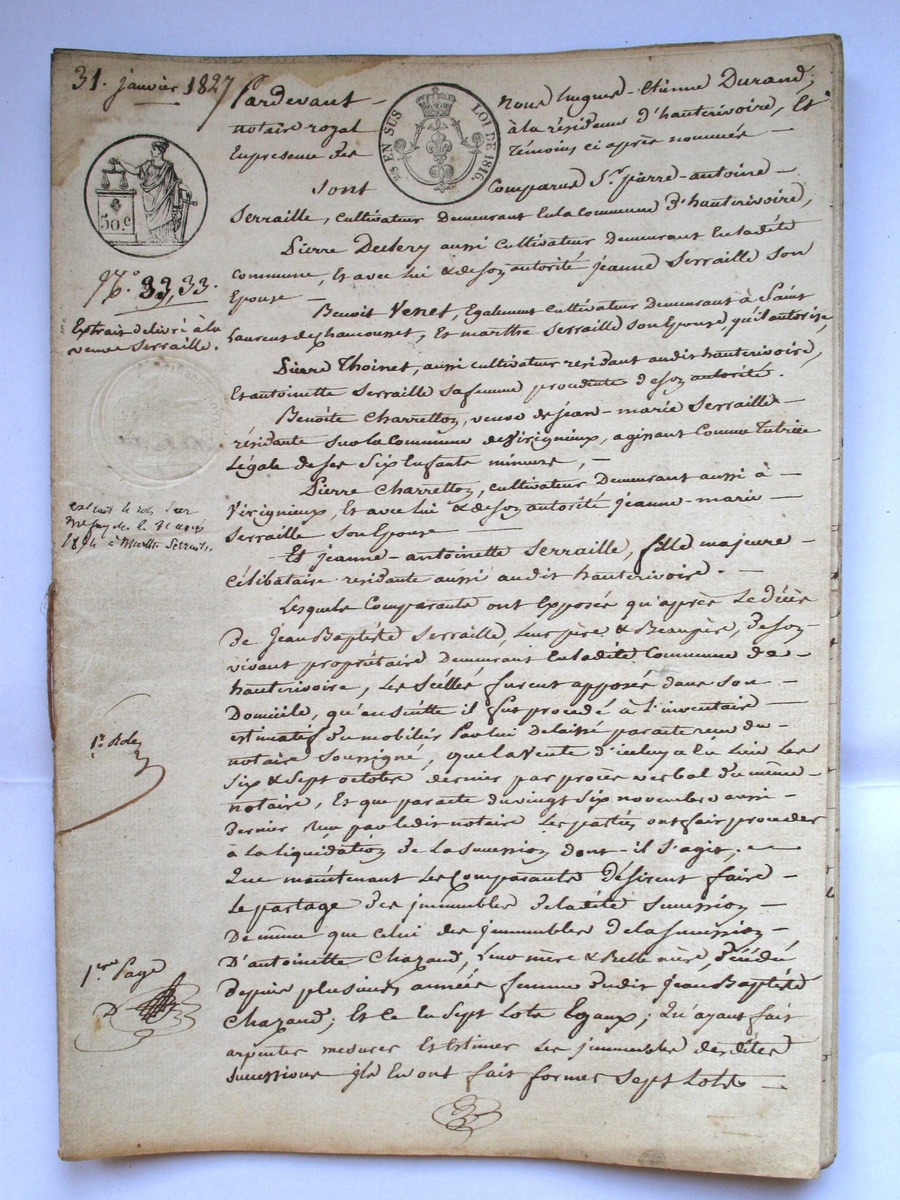 31. janvier 1827
Pardevant — Nous hugues-Etienne Durand,
notaire royal à la résidence d'hauterivoire, Et
En presence des témoins ci après nommés —
25 EN SUS LOI DE 1816.
50.c
Sont Comparus Sr. pierre-antoine —
Serraille, cultivateur demeurant En la commune d'hauterivoire,
Pierre Decléry aussi cultivateur demeurant En ladite
Commune, Et avec lui & de Son autorité jeanne Serraille Son
Epouse —
N.o 33,33.
Extrait délivré à la
veuve Serraille.
Benoît Venet, Egalement cultivateur demeurant à Saint
Laurent de Chamousset, Et marthe Serraille Son Epouse, qu'il autorise,
Pierre Thoinet, aussi cultivateur résidant audit hauterivoire,
Et antoinette Serraille Sa femme procédente de Son autorité.
Benoîte Charretton, veuve de jean-marie Serraille —
résidante Sur la Commune de Virigneux, agissant Comme Tutrice
Légale de Ses Six Enfants mineurs, —
Pierre Charretton, cultivateur Demeurant aussi à —
Virigneux, Et avec lui & de Son autorité jeanne-marie —
Serraille Son Epouse —
à Marthe Serraille
Et jeanne-antoinette Serraille, fille majeure —
Célibataire résidante aussi audit hauterivoire. —
Lesquels Comparants ont Exposés qu'après Le décès
de Jean Baptiste Serraille, Leur père & Beaupère, de Son
vivant propriétaire demeurant En ladite Commune de —
hauterivoire, Les Scéllés furent apposés dans Son —
Domicile, qu'ensuitte il fut procédé à L'inventaire —
estimatif du mobilier Par lui délaissé par acte reçu du —
notaire Soussigné, que la Vente d'icelui a Eu Lieu Les
Six & Sept octobre dernier par procès verbal du même —
notaire, Et que par acte du vingt Six novembre aussi —
dernier reçu par ledit notaire Les parties ont fait procéder
à La Liquidation de La Succession dont-il S'agit; —
Que maintenant Les Comparants désirent faire —
Le partage des immeubles de ladite Succession —
De même que celui des immeubles de la Succession —
D'antoinette Chazaud, Leur mère & Belle mère, décédée
depuis plusieurs années femme dudit Jean Baptiste
Chazaud; Et ce En Sept Lots Egaux; Qu'ayant fait
arpenter mesurer Et Estimer Les immeubles desdites
Successions ils En ont fait former Sept Lots —
1er Role
1ere Page
D